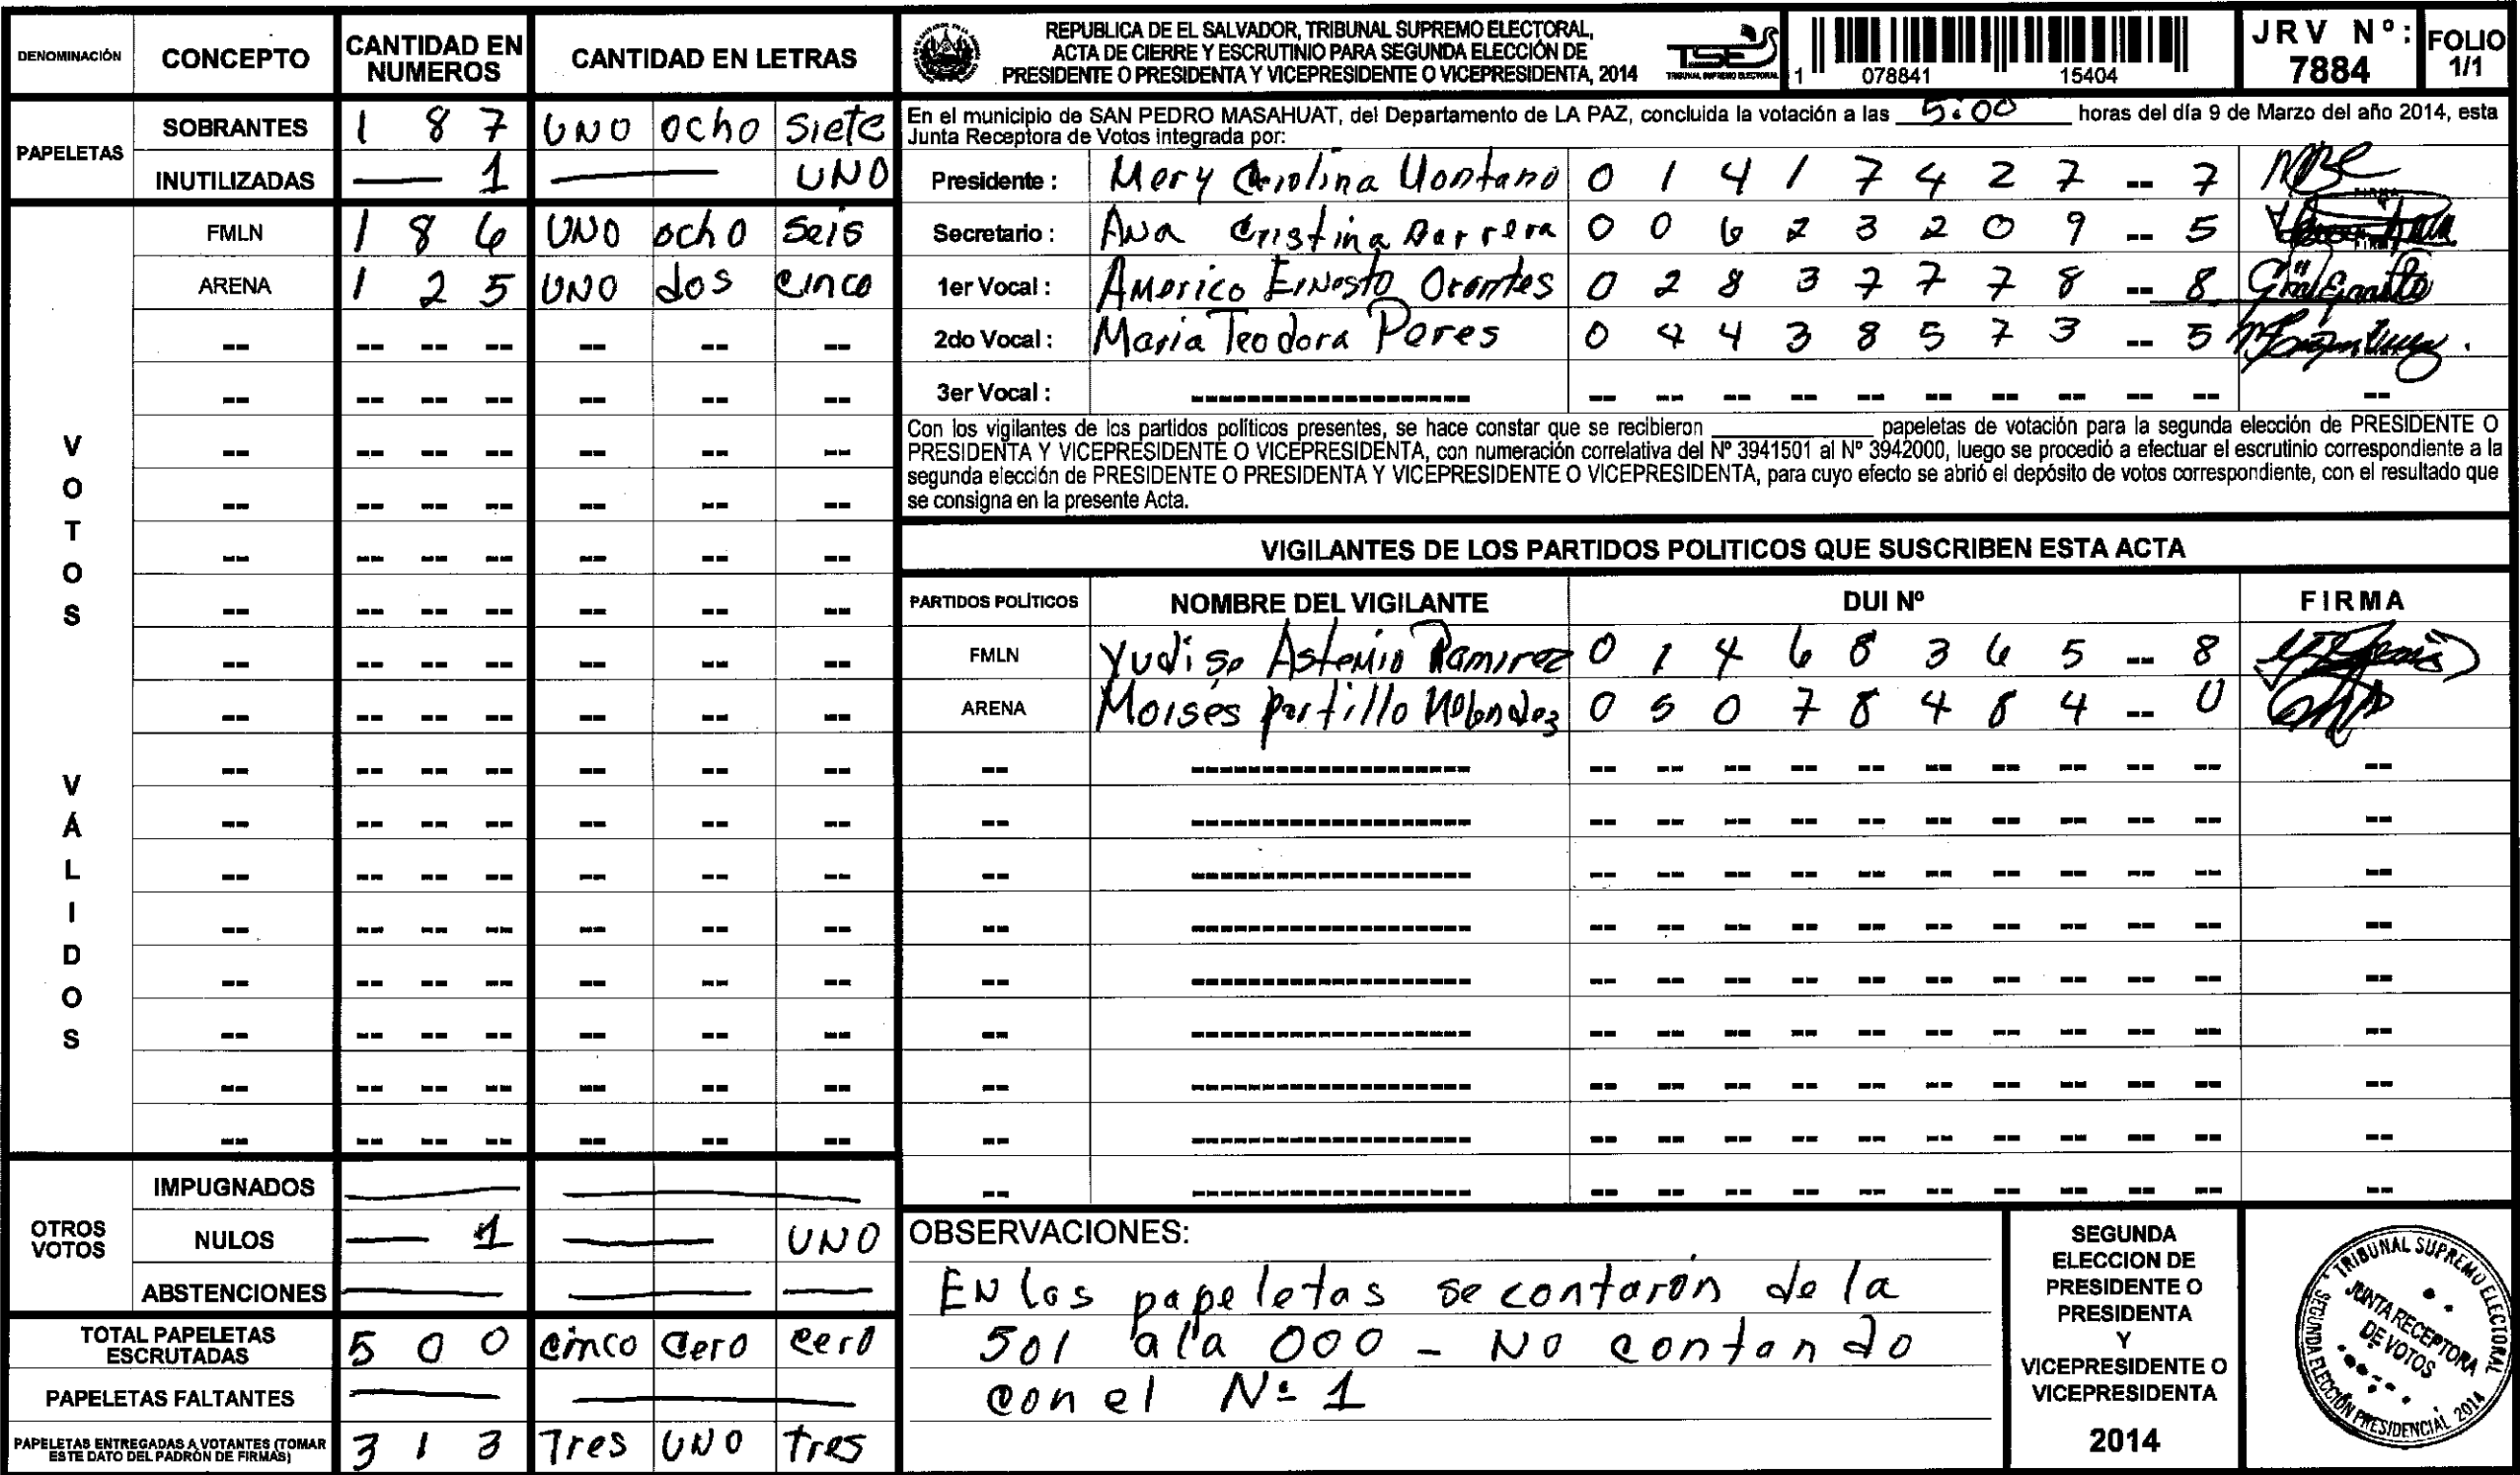 DENOMINACIÓN CONCEPTO CANTIDAD EN NUMEROS CANTIDAD EN LETRAS
PAPELETAS
SOBRANTES 1 8 7 UNO ocho Siete
INUTILIZADAS — 1 — UNO
VOTOS VÁLIDOS
FMLN 1 8 6 UNO ocho seis
ARENA 1 2 5 UNO dos cinco
OTROS VOTOS
IMPUGNADOS — —
NULOS — 1 — UNO
ABSTENCIONES — — —
TOTAL PAPELETAS ESCRUTADAS 5 0 0 cinco cero cero
PAPELETAS FALTANTES — —
PAPELETAS ENTREGADAS A VOTANTES (TOMAR ESTE DATO DEL PADRÓN DE FIRMAS) 3 1 3 Tres UNO tres
REPUBLICA DE EL SALVADOR, TRIBUNAL SUPREMO ELECTORAL,
ACTA DE CIERRE Y ESCRUTINIO PARA SEGUNDA ELECCIÓN DE
PRESIDENTE O PRESIDENTA Y VICEPRESIDENTE O VICEPRESIDENTA, 2014
TSE
TRIBUNAL SUPREMO ELECTORAL
1 078841 15404
JRV Nº: 7884
FOLIO 1/1
En el municipio de SAN PEDRO MASAHUAT, del Departamento de LA PAZ, concluida la votación a las 5:00 horas del día 9 de Marzo del año 2014, esta
Junta Receptora de Votos integrada por:
Presidente : Mery Carolina Montano 0 1 4 1 7 4 2 7 -- 7
Secretario : Ana Cristina Barrera 0 0 6 2 3 2 0 9 -- 5
1er Vocal : Americo Ernesto Orantes 0 2 8 3 7 7 7 8 -- 8
2do Vocal : Maria Teodora Peres 0 4 4 3 8 5 7 3 -- 5
3er Vocal :
Con los vigilantes de los partidos políticos presentes, se hace constar que se recibieron ____ papeletas de votación para la segunda elección de PRESIDENTE O
PRESIDENTA Y VICEPRESIDENTE O VICEPRESIDENTA, con numeración correlativa del Nº 3941501 al Nº 3942000, luego se procedió a efectuar el escrutinio correspondiente a la
segunda elección de PRESIDENTE O PRESIDENTA Y VICEPRESIDENTE O VICEPRESIDENTA, para cuyo efecto se abrió el depósito de votos correspondiente, con el resultado que
se consigna en la presente Acta.
VIGILANTES DE LOS PARTIDOS POLITICOS QUE SUSCRIBEN ESTA ACTA
PARTIDOS POLÍTICOS NOMBRE DEL VIGILANTE DUI Nº FIRMA
FMLN Ramirez 0 1 4 6 8 3 6 5 -- 8
ARENA Moises Portillo 0 5 0 7 8 4 8 4 -- 0
OBSERVACIONES:
EN las papeletas se contaron de la
501 a la 000 - No contando
con el Nº 1
SEGUNDA
ELECCION DE
PRESIDENTE O
PRESIDENTA
Y
VICEPRESIDENTE O
VICEPRESIDENTA
2014
TRIBUNAL SUPREMO ELECTORAL
JUNTA RECEPTORA
DE VOTOS
SEGUNDA ELECCIÓN PRESIDENCIAL 2014